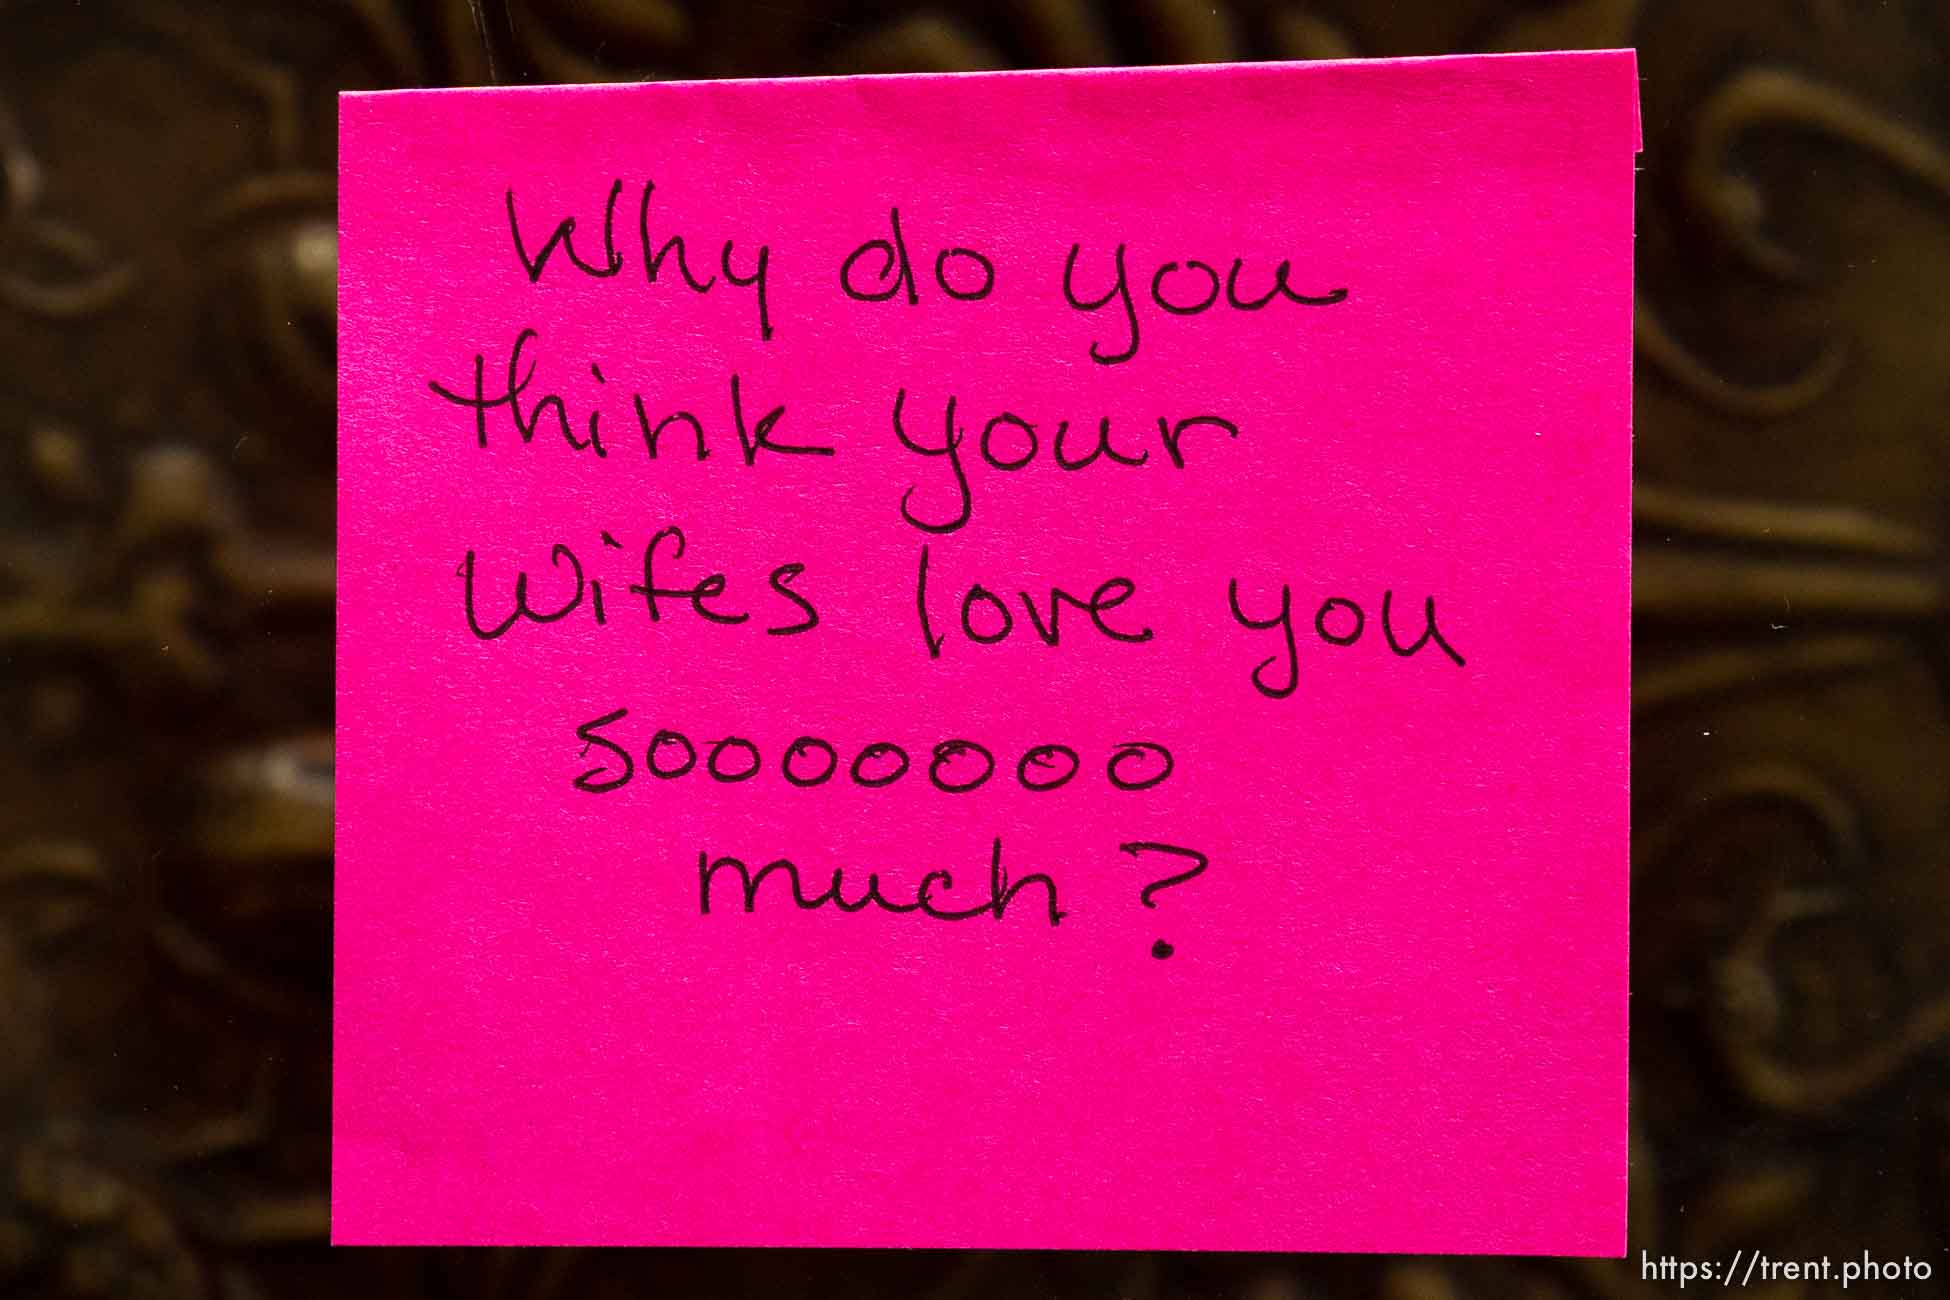 Why do you
think your
wifes love you
sooooooo
much?
https://trent.photo